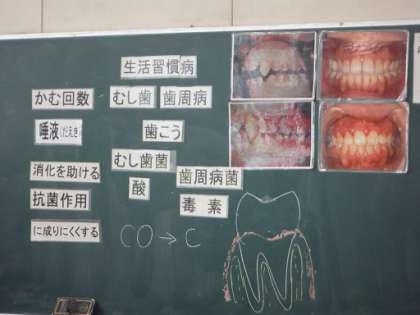 生活習慣病
かむ回数
むし歯
歯周病
唾液(だえき)
歯こう
消化を助ける
むし歯菌
歯周病菌
抗菌作用
酸
毒素
に成りにくくする
CO→C